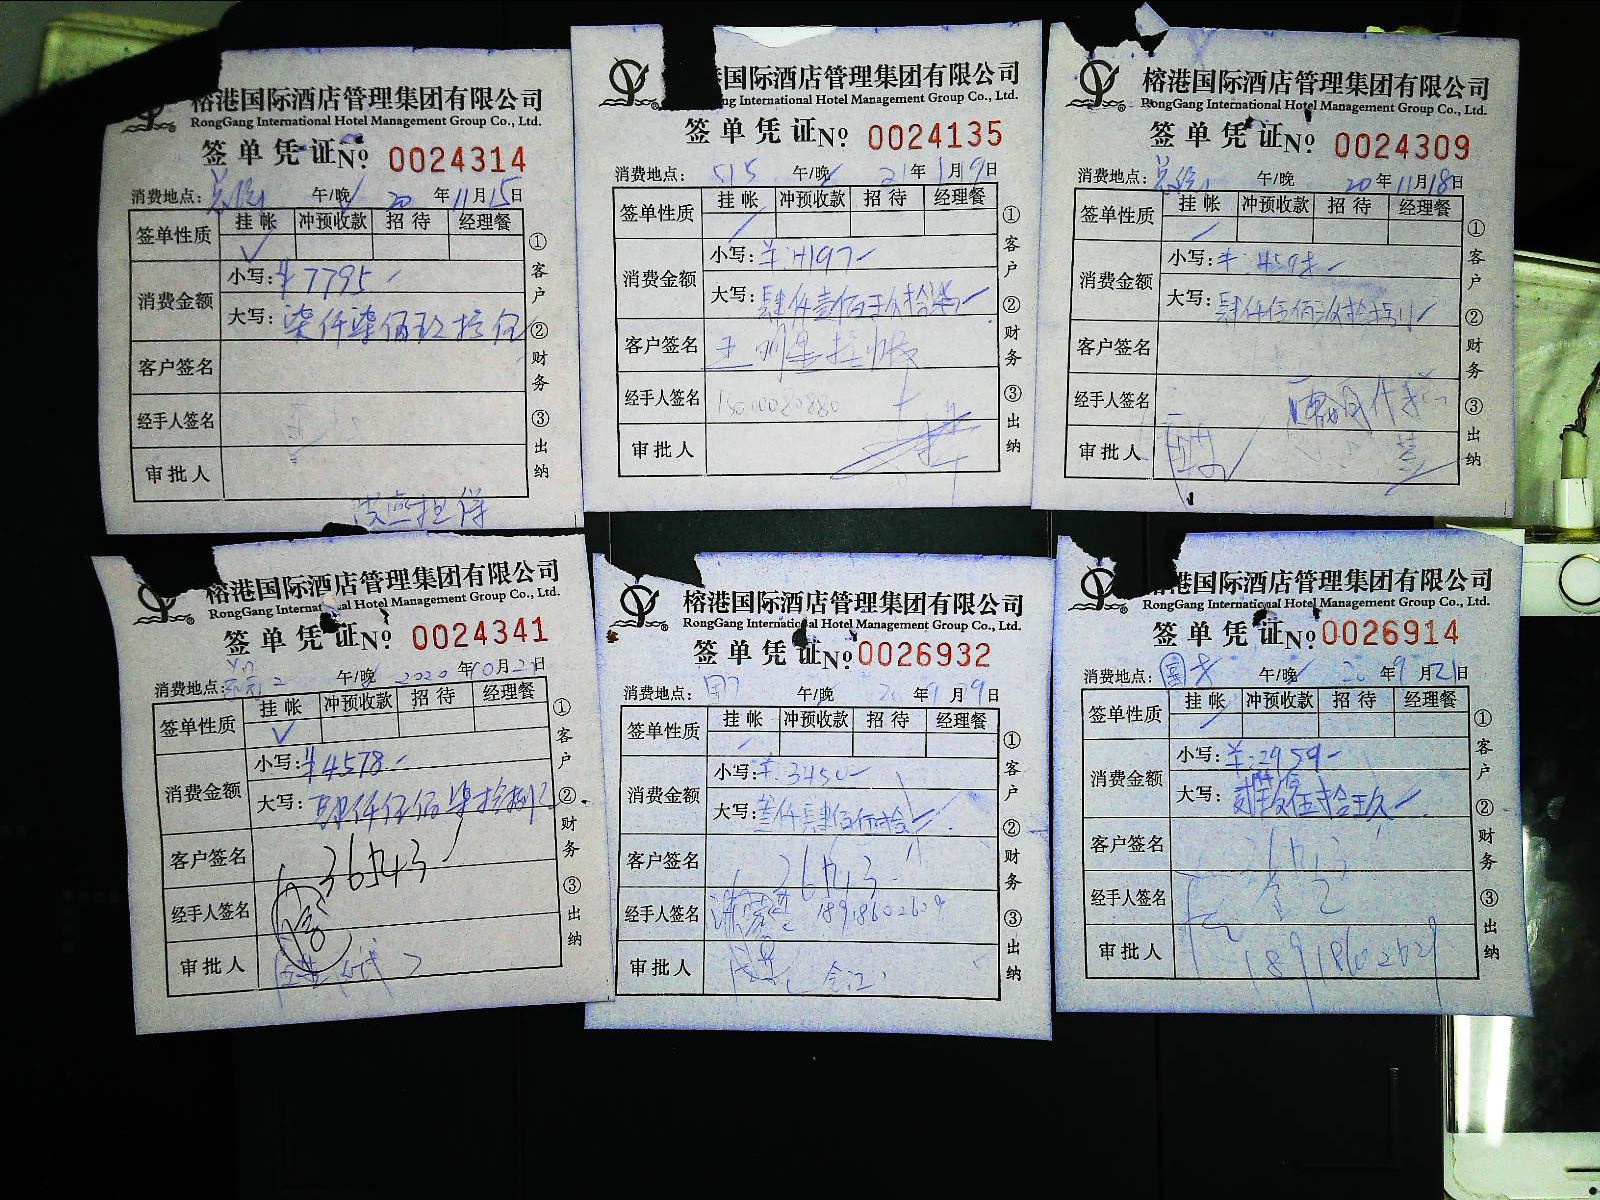 榕港国际酒店管理集团有限公司
RongGang International Hotel Management Group Co., Ltd.
签单凭证 No 0024314
消费地点: 午/晚 20年11月15日
签单性质 挂帐 冲预收款 招待 经理餐
消费金额 小写:¥7795
大写:柒仟柒佰玖拾伍
客户签名
经手人签名
审批人
担保
①客户 ②财务 ③出纳
港国际酒店管理集团有限公司
International Hotel Management Group Co., Ltd.
签单凭证 No 0024135
消费地点: 515 午/晚 21年1月9日
签单性质 挂帐 冲预收款 招待 经理餐
消费金额 小写:¥:4197
大写:肆仟壹佰玖拾柒
客户签名
经手人签名
审批人
①客户 ②财务 ③出纳
榕港国际酒店管理集团有限公司
RongGang International Hotel Management Group Co., Ltd.
签单凭证 No 0024309
消费地点: 午/晚 20年11月18日
签单性质 挂帐 冲预收款 招待 经理餐
消费金额 小写:
大写:肆仟伍佰
客户签名
经手人签名
审批人
①客户 ②财务 ③出纳
榕港国际酒店管理集团有限公司
RongGang International Hotel Management Group Co., Ltd.
签单凭证 No 0024341
消费地点: 午/晚 2020年10月21日
签单性质 挂帐 冲预收款 招待 经理餐
消费金额 小写:¥4578
大写:肆仟伍佰柒拾捌
客户签名
经手人签名
审批人
①客户 ②财务 ③出纳
榕港国际酒店管理集团有限公司
RongGang International Hotel Management Group Co., Ltd.
签单凭证 No 0026932
消费地点: 午/晚 20年9月9日
签单性质 挂帐 冲预收款 招待 经理餐
消费金额 小写:¥:3450
大写:叁仟肆佰伍拾
客户签名
经手人签名 18918602629
审批人
①客户 ②财务 ③出纳
港国际酒店管理集团有限公司
RongGang International Hotel Management Group Co., Ltd.
签单凭证 No 0026914
消费地点: 午/晚 20年9月21日
签单性质 挂帐 冲预收款 招待 经理餐
消费金额 小写:¥:2959
大写:
客户签名
经手人签名
审批人 18918602629
①客户 ②财务 ③出纳